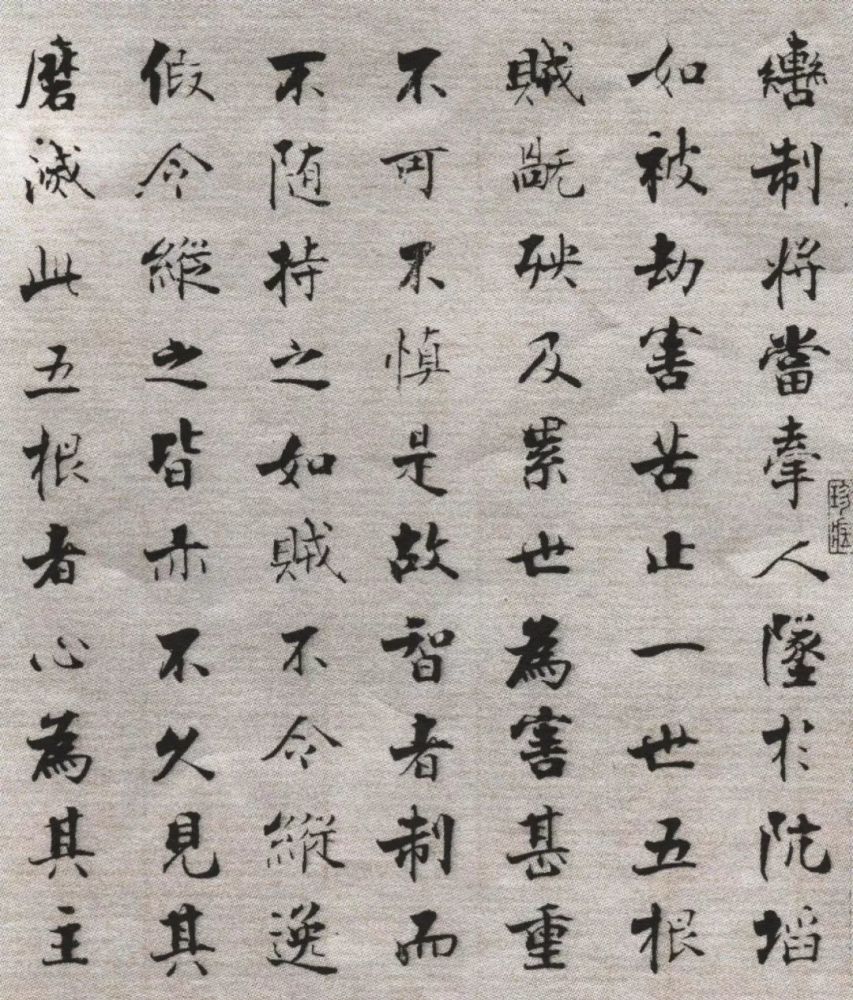 轡制将當牽人墜於阬埳
如被劫害苦止一世五根
賊既殃及累世為害甚重
不可不慎是故智者制而
不随持之如賊不令縱逸
假令縱之皆亦不久見其
磨滅此五根者心為其主